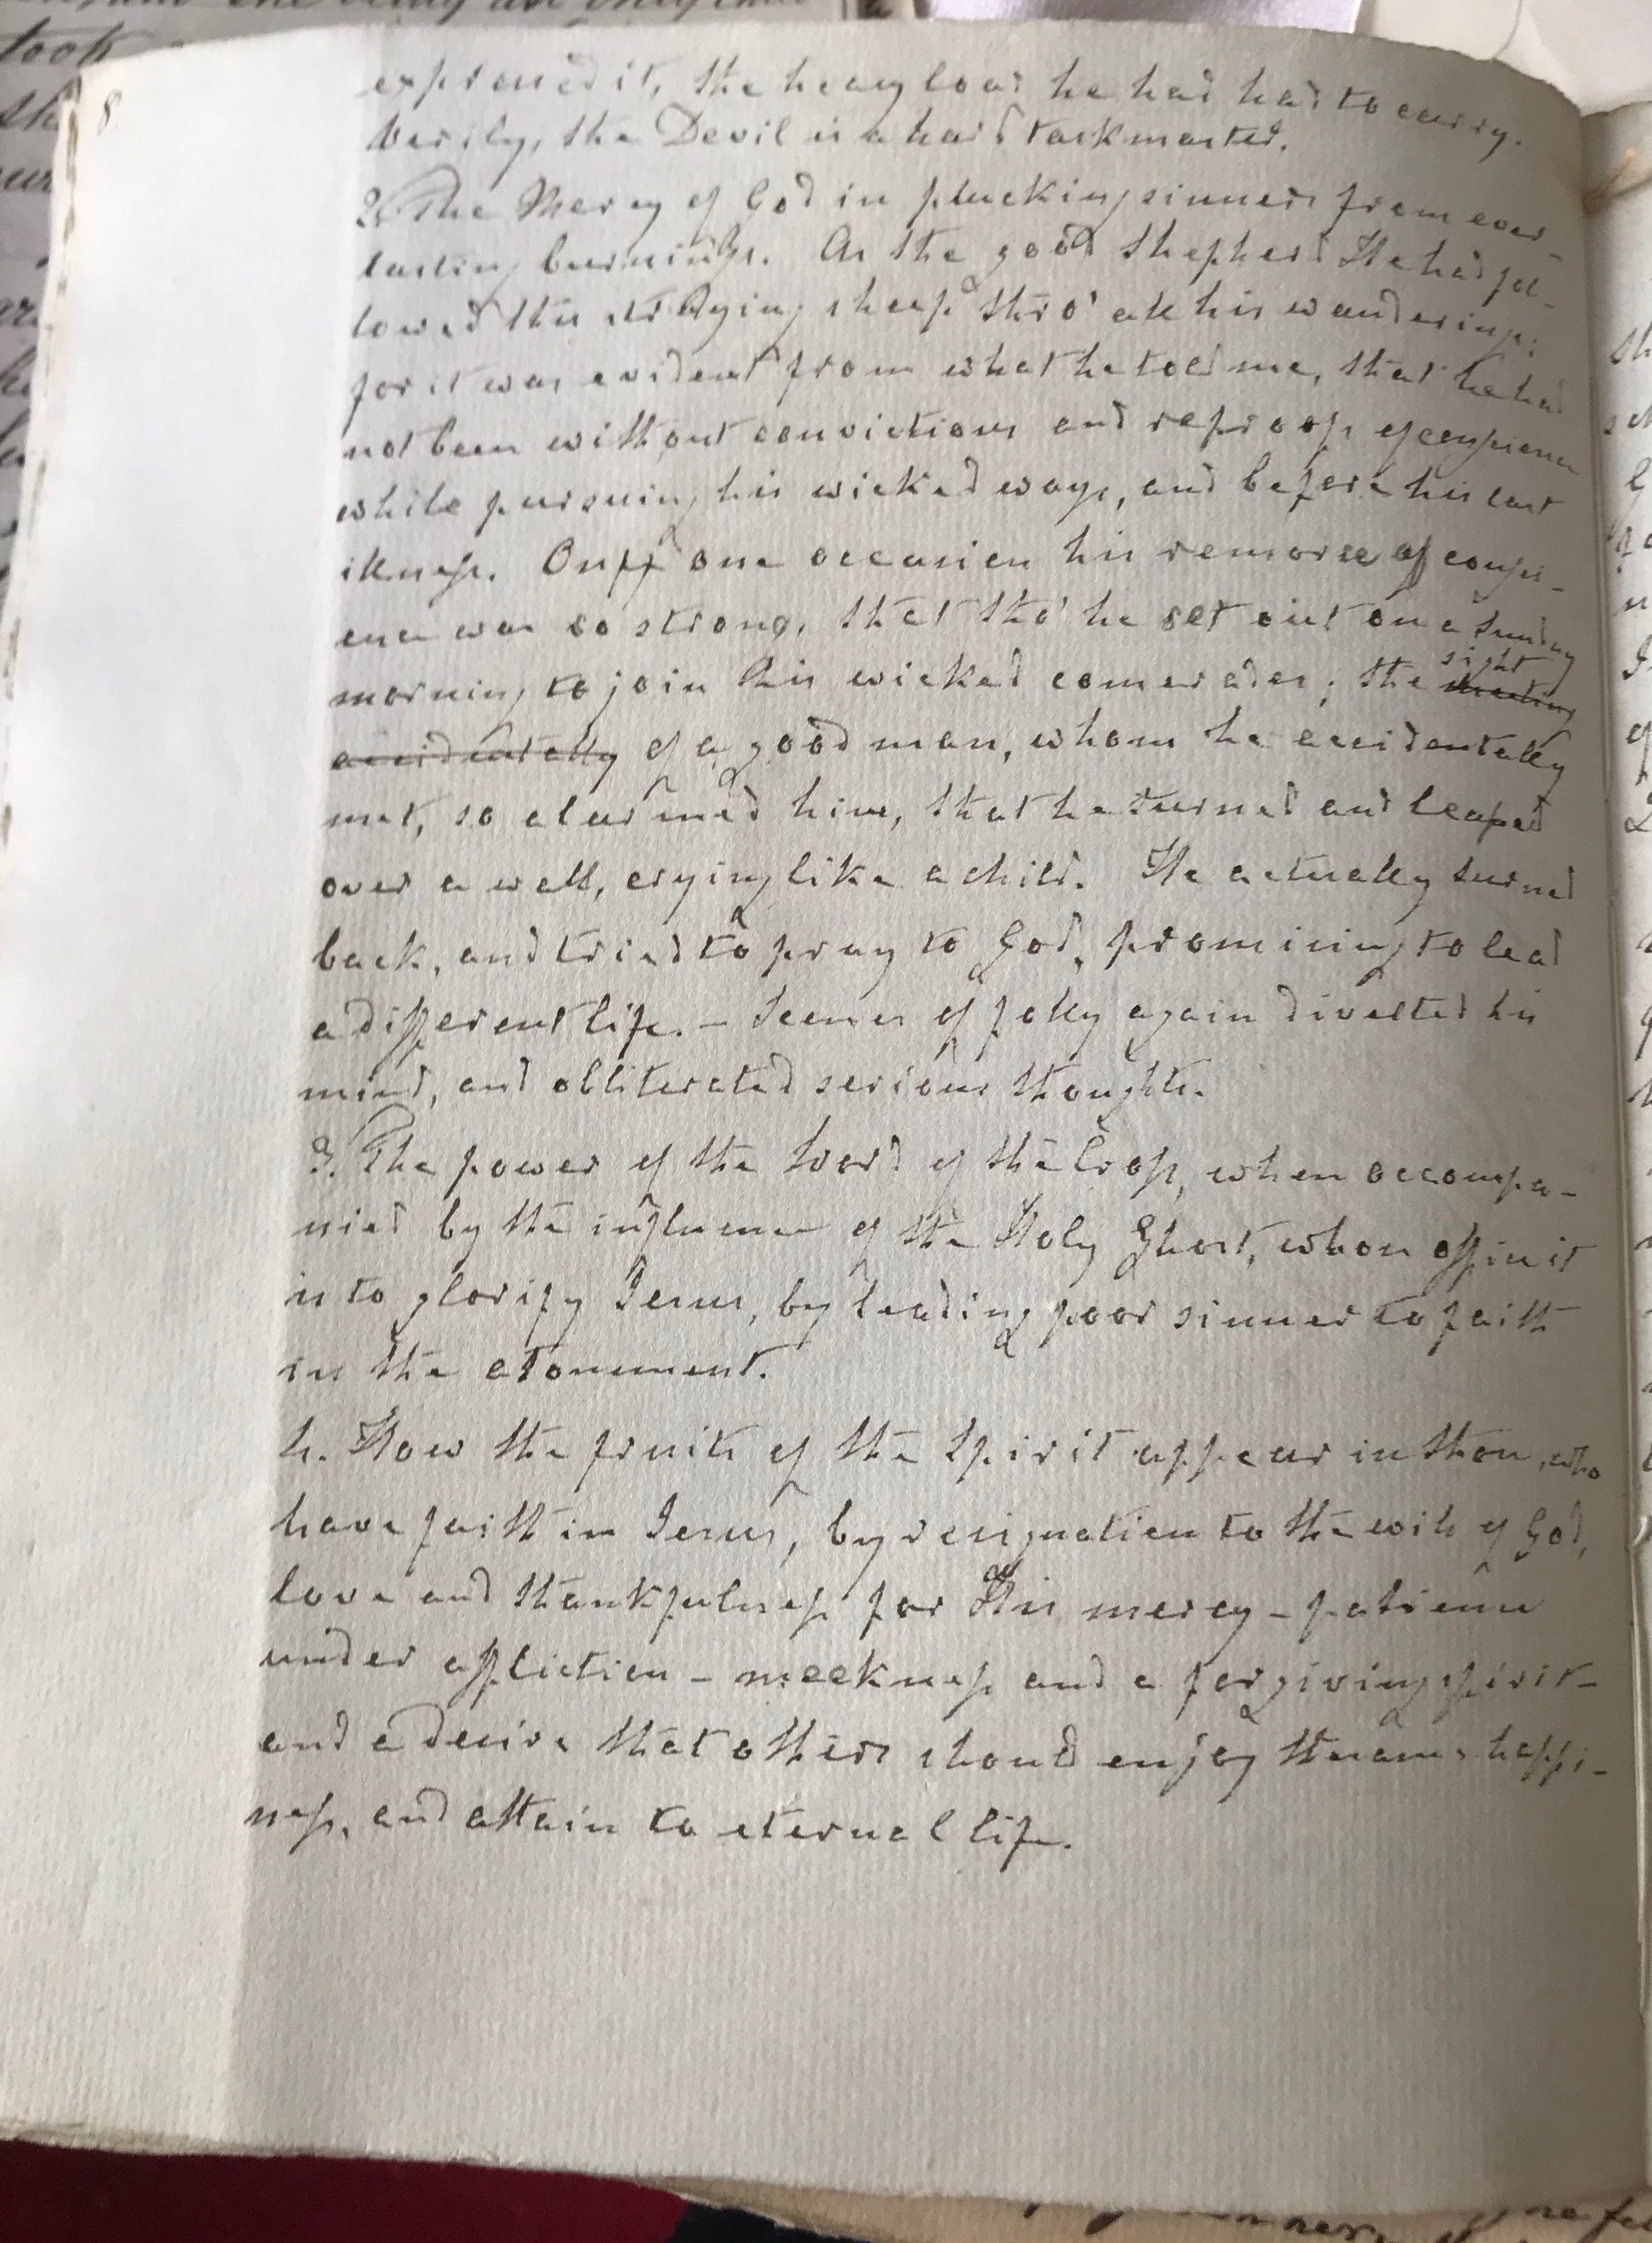 8
expressed it, the heavy load he had had to carry.
Verily, the Devil is a hard taskmaster.
2. The Mercy of God in plucking sinners from ever-
lasting burnings. As the good Shepherd He had fol-
lowed this straying sheep thro' all his wanderings;
for it was evident from what he told me, that he had
not been without convictions and reproofs of conscience
while pursuing his wicked ways, and before his last
ikness. On one occasion his remorse of consci-
ence was so strong, that tho' he set out on a Sunday
morning to join his wicked comerades; the sight meeting
accidentally of a good man, whom he accidentally
met, so alarmed him, that he turned and leaped
over a wall, crying like a child. He actually turned
back, and tried to pray to God, promising to lead
a different life. – Scenes of folly again diverted his
mind, and obliterated serious thoughts.
3. The power of the Word of the Cross, when accompa-
nied by the influence of the Holy Ghost, whose office it
is to glorify Jesus, by leading poor sinner to faith
in the atonement.
4. How the fruits of the Spirit appear in those, who
have faith in Jesus, by resignation to the will of God,
love and thankfulness for His mercy – patience
under affliction – meekness and a forgiving spirit –
and a desire that others should enjoy the same happi-
ness, and attain to eternal life.
took